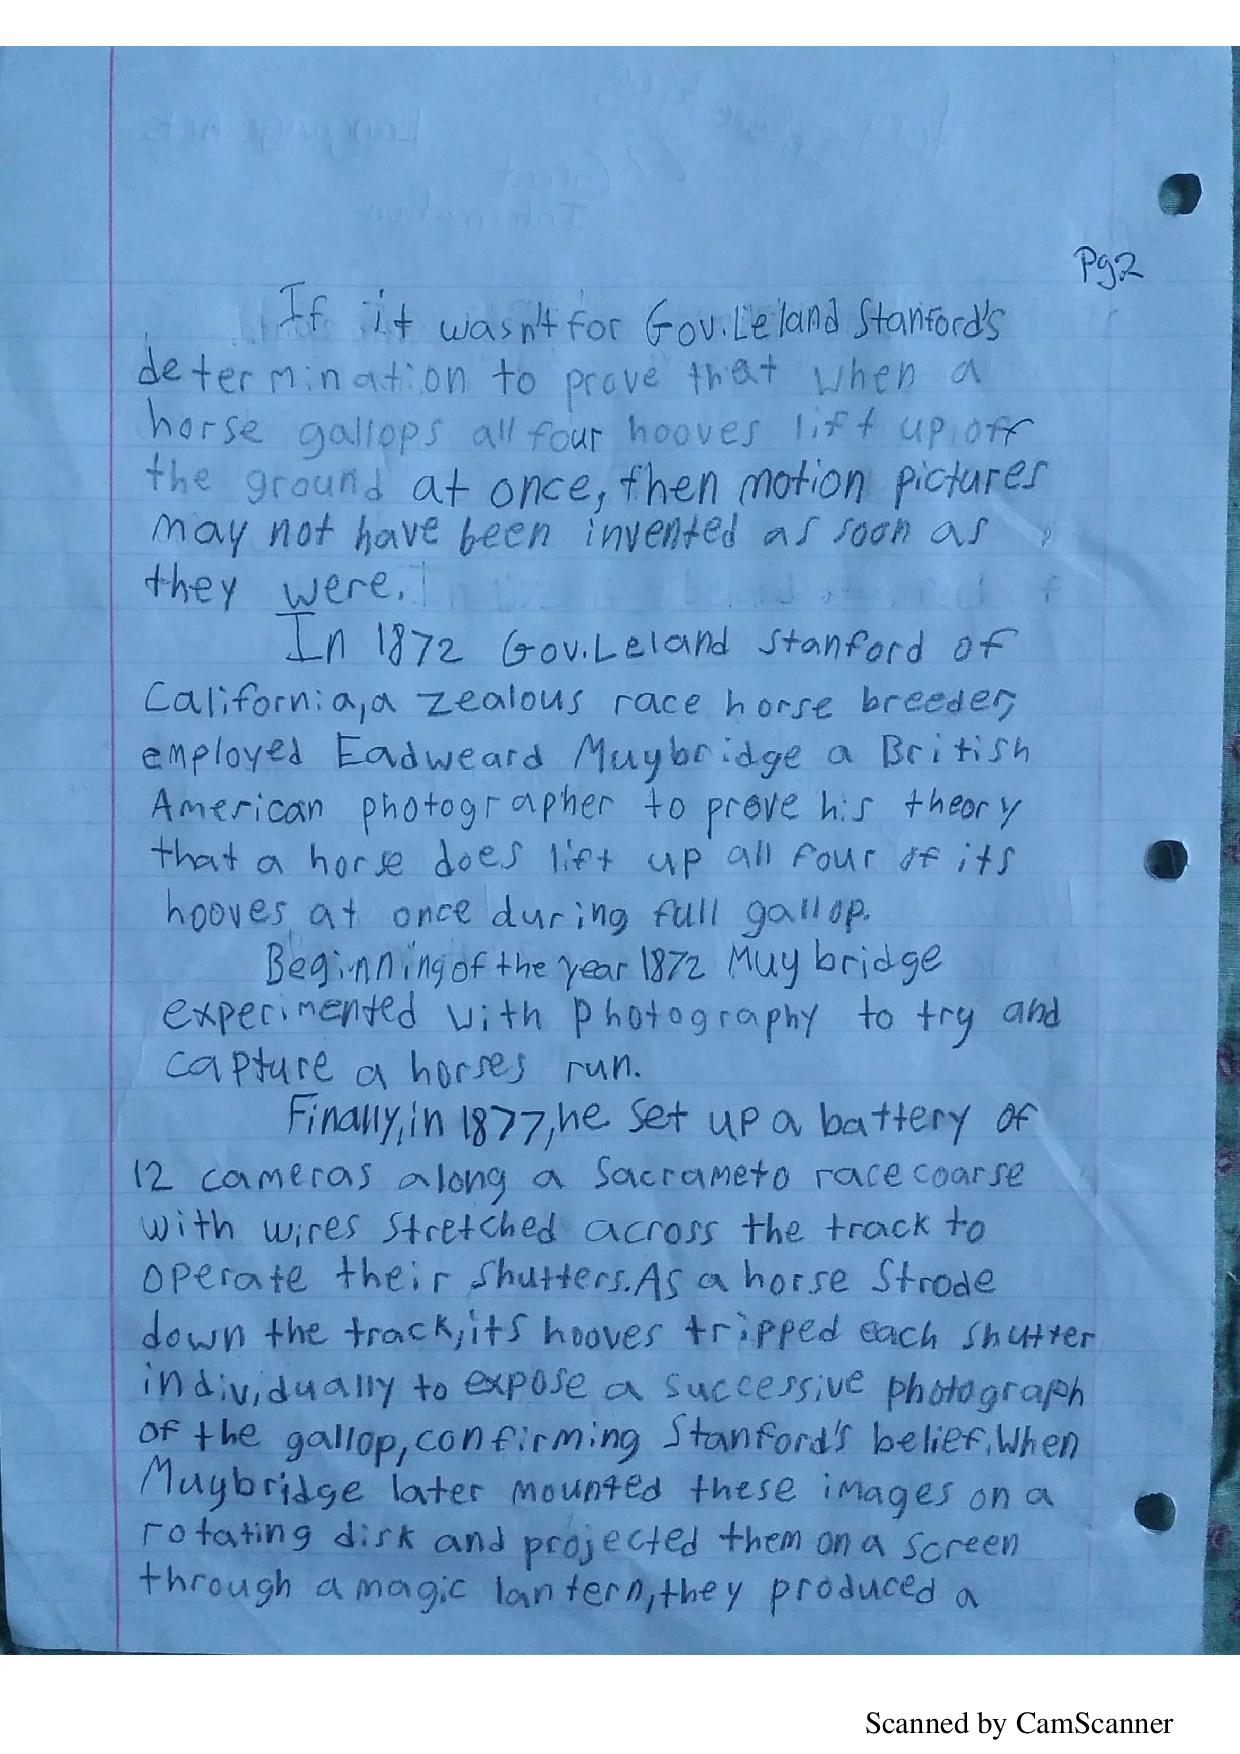 Pg2
If it wasn't for Gov. Leland Stanford's
determination to prove that when a
horse gallops all four hooves lift up off
the ground at once, then motion pictures
may not have been invented as soon as
they were.
In 1872 Gov. Leland Stanford of
California, a zealous race horse breeder,
employed Eadweard Muybridge a British
American photographer to prove his theory
that a horse does lift up all four of its
hooves at once during full gallop.
Beginning of the year 1872 Muybridge
experimented with photography to try and
capture a horses run.
Finally, in 1877, he set up a battery of
12 cameras along a Sacrameto race coarse
with wires stretched across the track to
operate their shutters. As a horse strode
down the track, its hooves tripped each shutter
individually to expose a successive photograph
of the gallop, confirming Stanford's belief. When
Muybridge later mounted these images on a
rotating disk and projected them on a screen
through a magic lantern, they produced a
Scanned by CamScanner